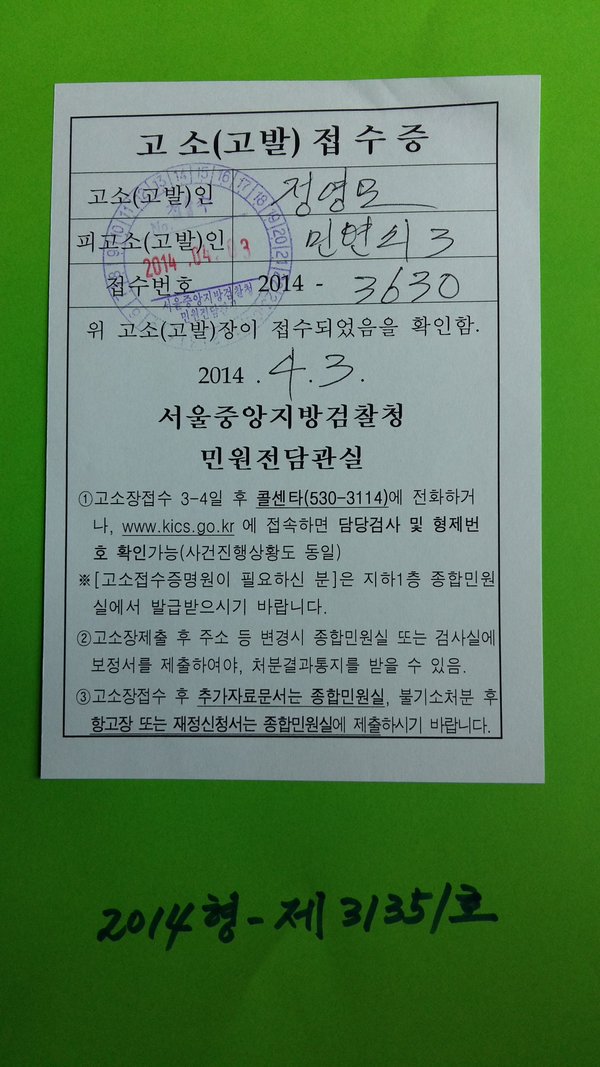 고 소(고발) 접 수 증
고소(고발)인 정영모
피고소(고발)인 민연식 3
접수번호 2014 - 3630
2014 .04.03
서울중앙지방검찰청
위 고소(고발)장이 접수되었음을 확인함.
2014 . 4. 3.
서울중앙지방검찰청
민원전담관실
①고소장접수 3-4일 후 콜센타(530-3114)에 전화하거
나, www.kics.go.kr 에 접속하면 담당검사 및 형제번
호 확인가능(사건진행상황도 동일)
※[고소접수증명원이 필요하신 분]은 지하1층 종합민원
실에서 발급받으시기 바랍니다.
②고소장제출 후 주소 등 변경시 종합민원실 또는 검사실에
보정서를 제출하여야, 처분결과통지를 받을 수 있음.
③고소장접수 후 추가자료문서는 종합민원실, 불기소처분 후
항고장 또는 재정신청서는 종합민원실에 제출하시기 바랍니다.
2014형-제31351호